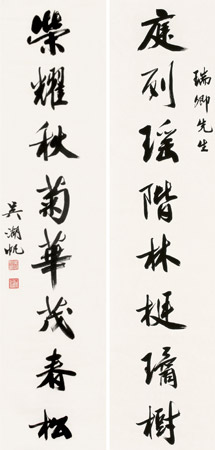 瑞卿先生
庭列瑶階林挺璚樹
榮耀秋菊華茂春松
吴湖帆